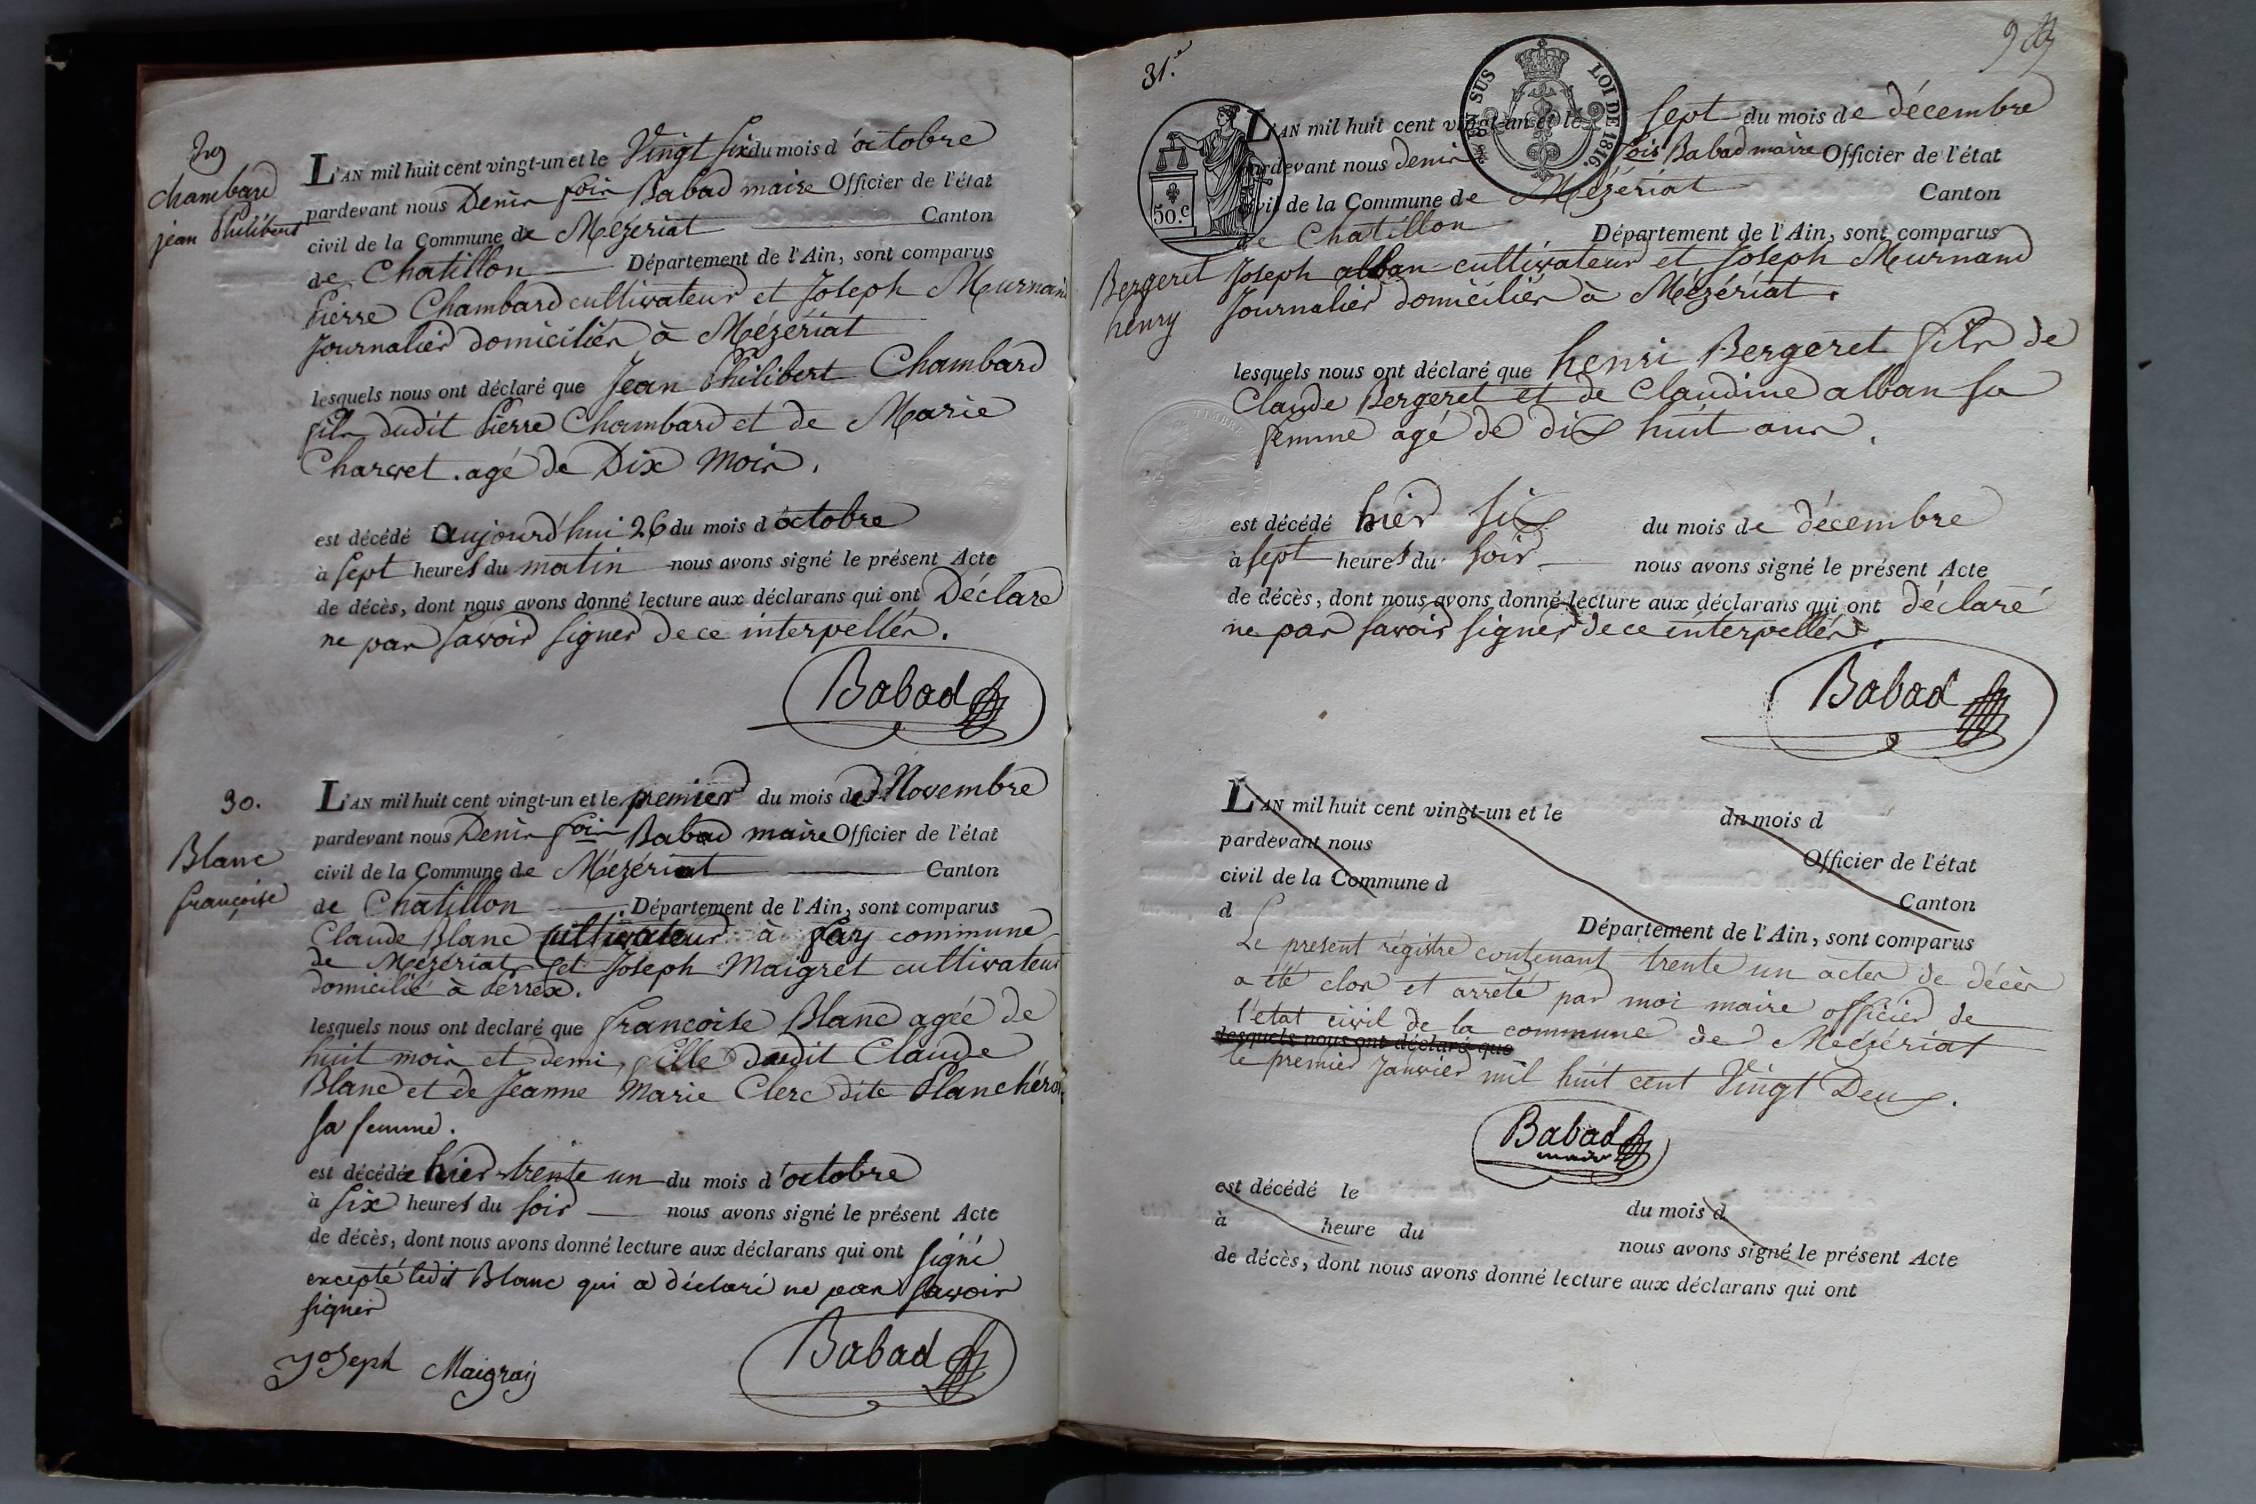 29
Chambard
jean Philibert
L'AN mil huit cent vingt-un et le Vingt Six du mois d'octobre
pardevant nous Denis fois Babad maire Officier de l'état
civil de la Commune de Mézériat Canton
de Chatillon Département de l'Ain, sont comparus
Pierre Chambard cultivateur et Joseph Murnand
Journalier domiciliés à Mézériat
lesquels nous ont déclaré que Jean Philibert Chambard
fils dudit Pierre Chambard et de Marie
Charvet. agé de Dix mois.
est décédé aujourd'hui 26 du mois d'octobre
à sept heures du matin nous avons signé le présent Acte
de décès, dont nous avons donné lecture aux déclarans qui ont Déclaré
ne pas savoir signer de ce interpellés.
Babad
30.
Blanc
françoise
L'AN mil huit cent vingt-un et le premier du mois de Novembre
pardevant nous Denis fois Babad maire Officier de l'état
civil de la Commune de Mézériat Canton
de Chatillon Département de l'Ain, sont comparus
Claude Blanc cultivateur à fay commune
de Mézériat et Joseph Maigret cultivateur
domicilié à Perrex.
lesquels nous ont declaré que francoise Blanc agée de
huit mois et demi, fille dudit Claude
Blanc et de Jeanne Marie Clerc dite Planchéron
sa femme.
est décédée hier trente un du mois d'octobre
à six heures du soir nous avons signé le présent Acte
de décès, dont nous avons donné lecture aux déclarans qui ont signé
excepté ledit Blanc qui a déclaré ne pas savoir
signer
Joseph Maigray
Babad
31.e
SUS
LOI DE 1816.
50.c
Bergeret
henry
L'AN mil huit cent vingt-un et le sept du mois de décembre
pardevant nous denis fois Babad maire Officier de l'état
civil de la Commune de Mézériat Canton
de Chatillon Département de l'Ain, sont comparus
Joseph alban cultivateur et Joseph Murnand
Journalier domiciliés à Mézériat.
lesquels nous ont déclaré que henri Bergeret fils de
Claude Bergeret et de Claudine alban sa
femme agé de dix huit ans.
est décédé hier six du mois de décembre
à sept heures du soir nous avons signé le présent Acte
de décès, dont nous avons donné lecture aux déclarans qui ont déclaré
ne pas savoir signer de ce interpellés
Babad
L'AN mil huit cent vingt-un et le du mois d
pardevant nous Officier de l'état
civil de la Commune d Canton
d Département de l'Ain, sont comparus
Le present régistre contenant trente un actes de décès
a été clos et arrêté par moi maire officier de
l'état civil de la commune de Mézériat
lesquels nous ont déclaré que
le premier Janvier mil huit cent Vingt Deux.
Babad
maire
est décédé le du mois d
à heure du nous avons signé le présent Acte
de décès, dont nous avons donné lecture aux déclarans qui ont